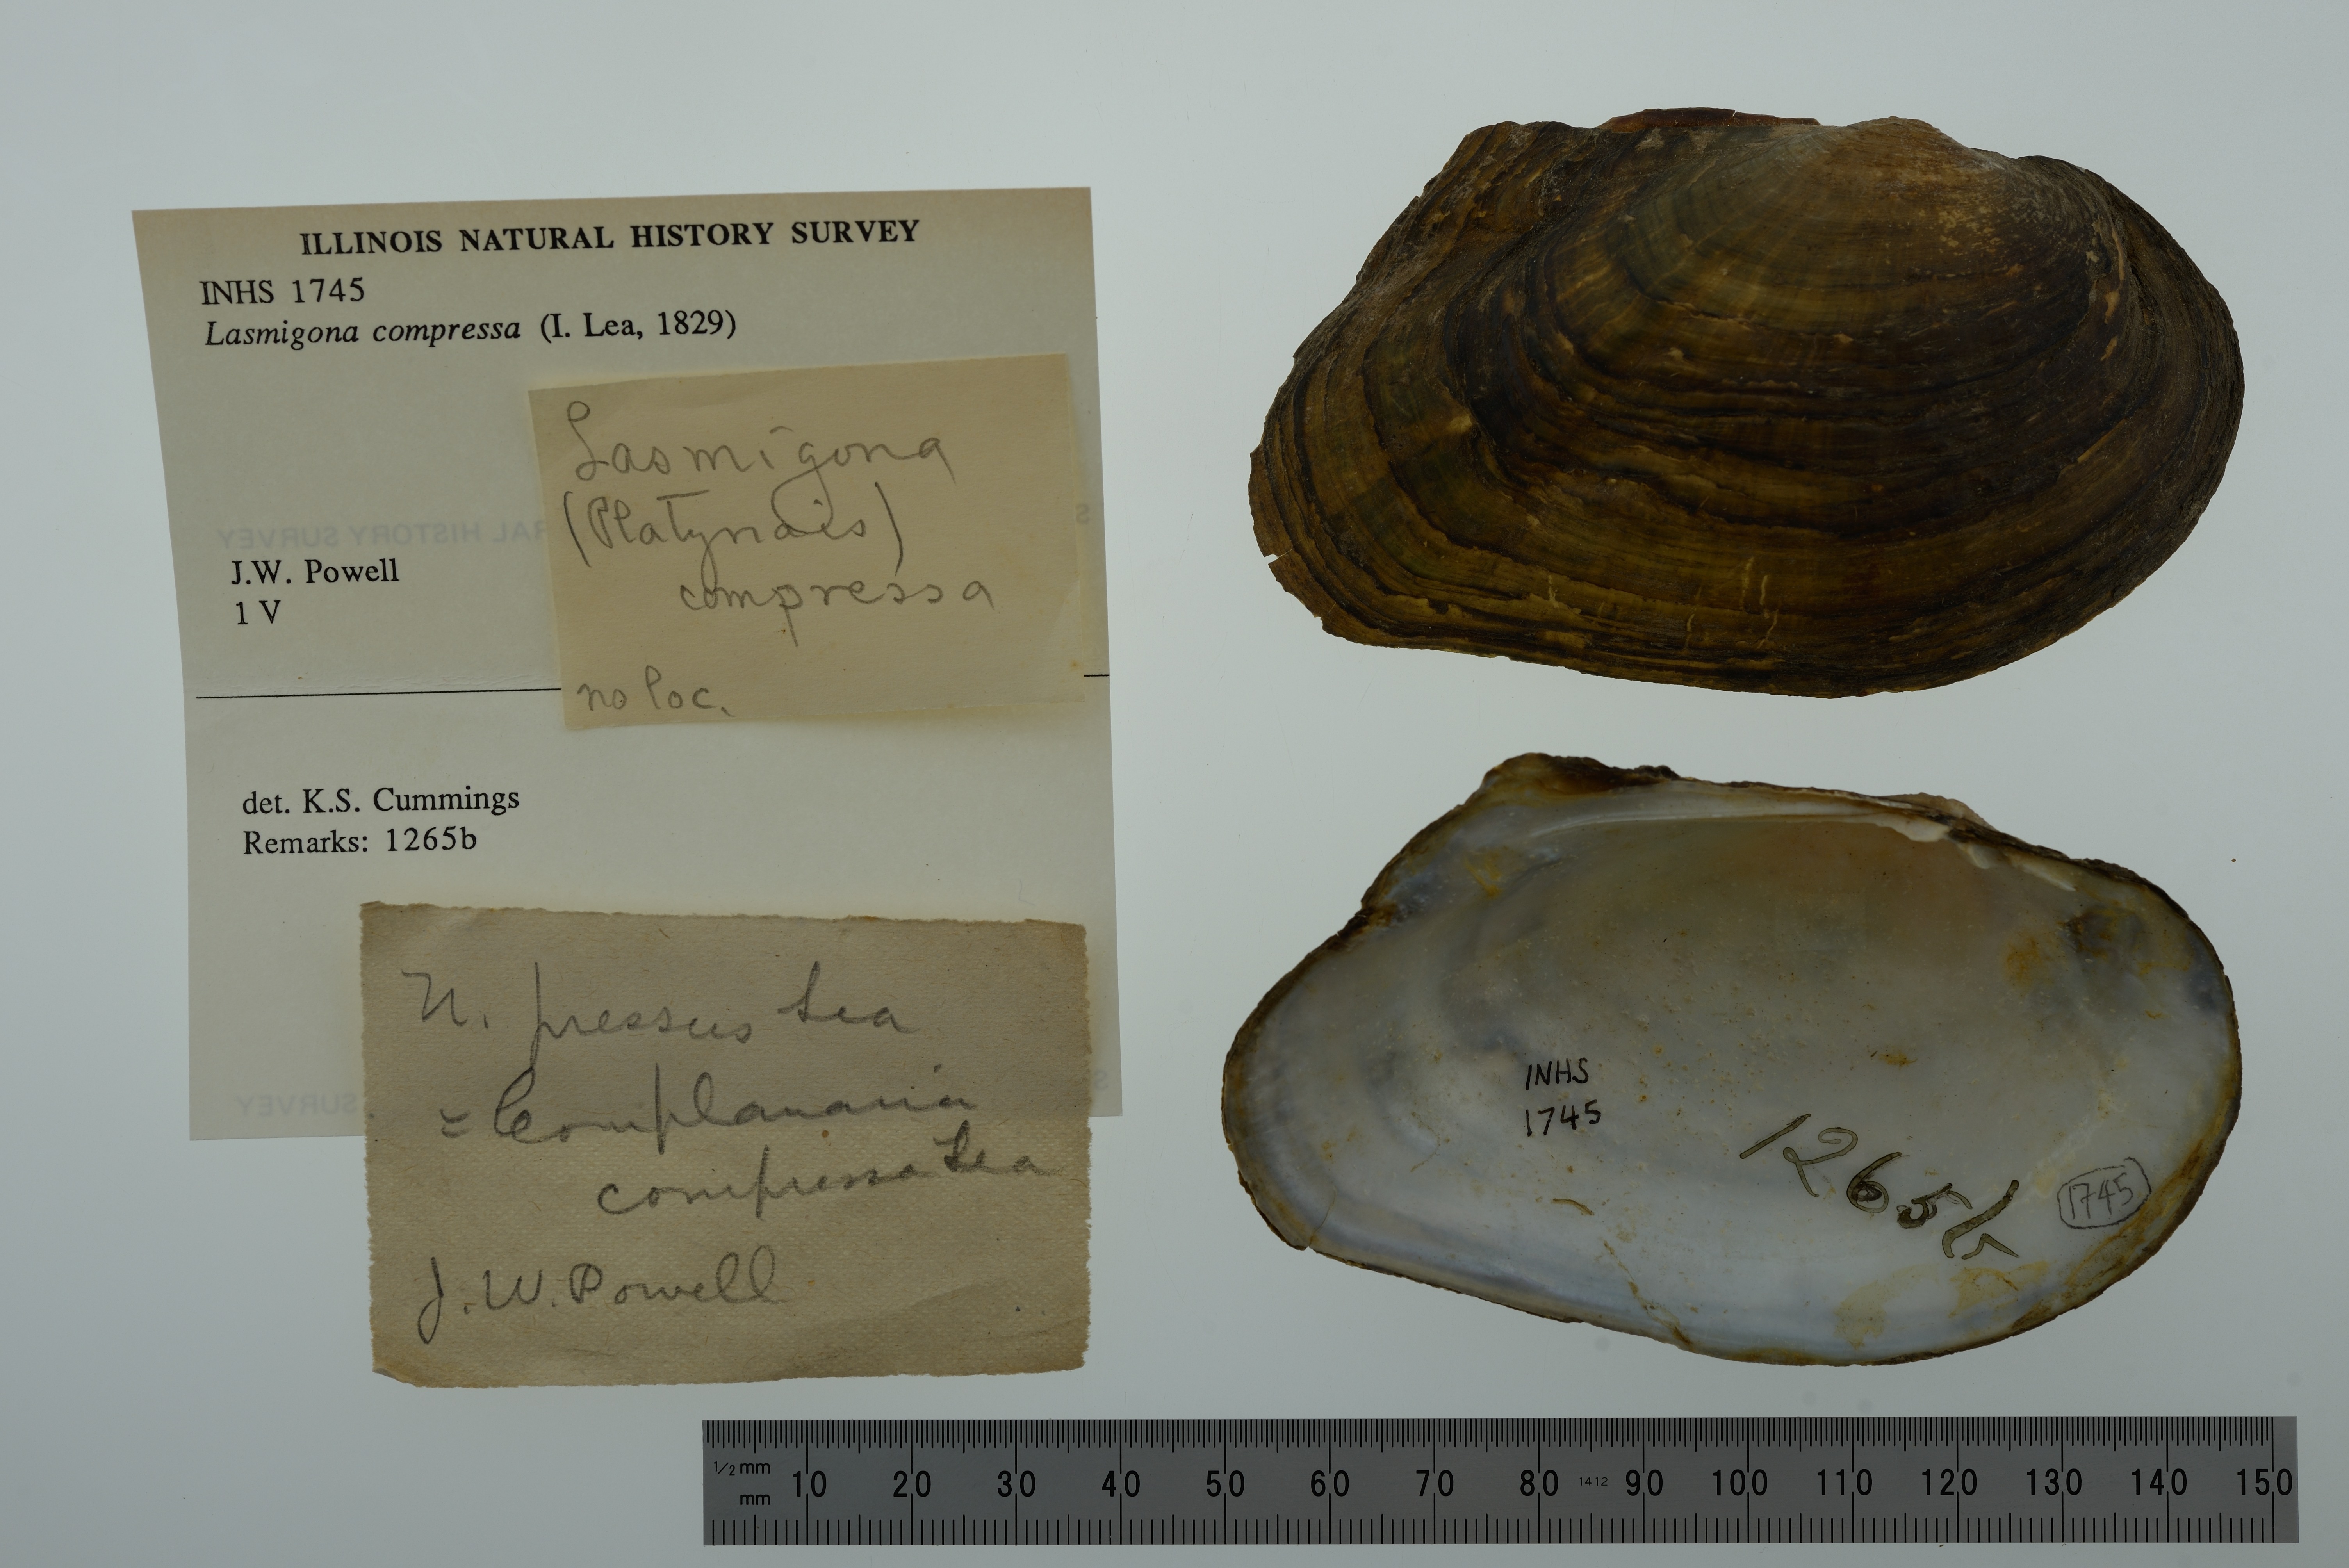 ILLINOIS NATURAL HISTORY SURVEY
INHS 1745
Lasmigona compressa (I. Lea, 1829)
J.W. Powell
1 V
det. K.S. Cummings
Remarks: 1265b
Lasmigona
(Platynaias)
compressa
no loc.
U. pressus Lea
= Complanaria
compressa Lea
J.W. Powell
RAL HISTORY SURVEY
SURVEY
INHS
1745
1265b
1745
1/2 mm
mm
10 20 30 40 50 60 70 80 1412 90 100 110 120 130 140 150